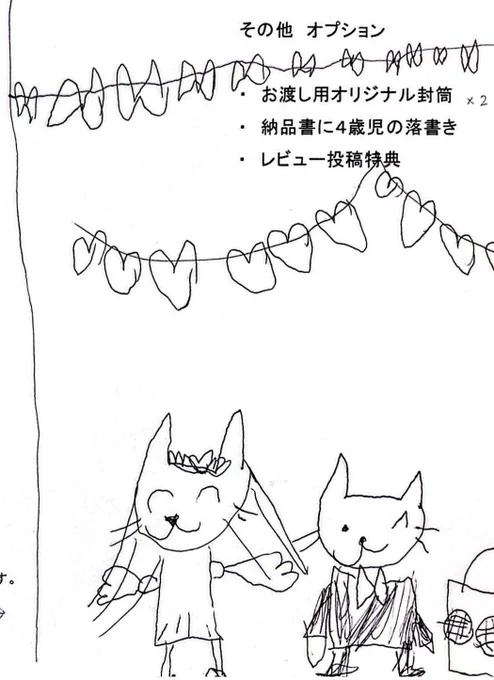 その他 オプション
・ お渡し用オリジナル封筒 ×2
・ 納品書に4歳児の落書き
・ レビュー投稿特典
す。